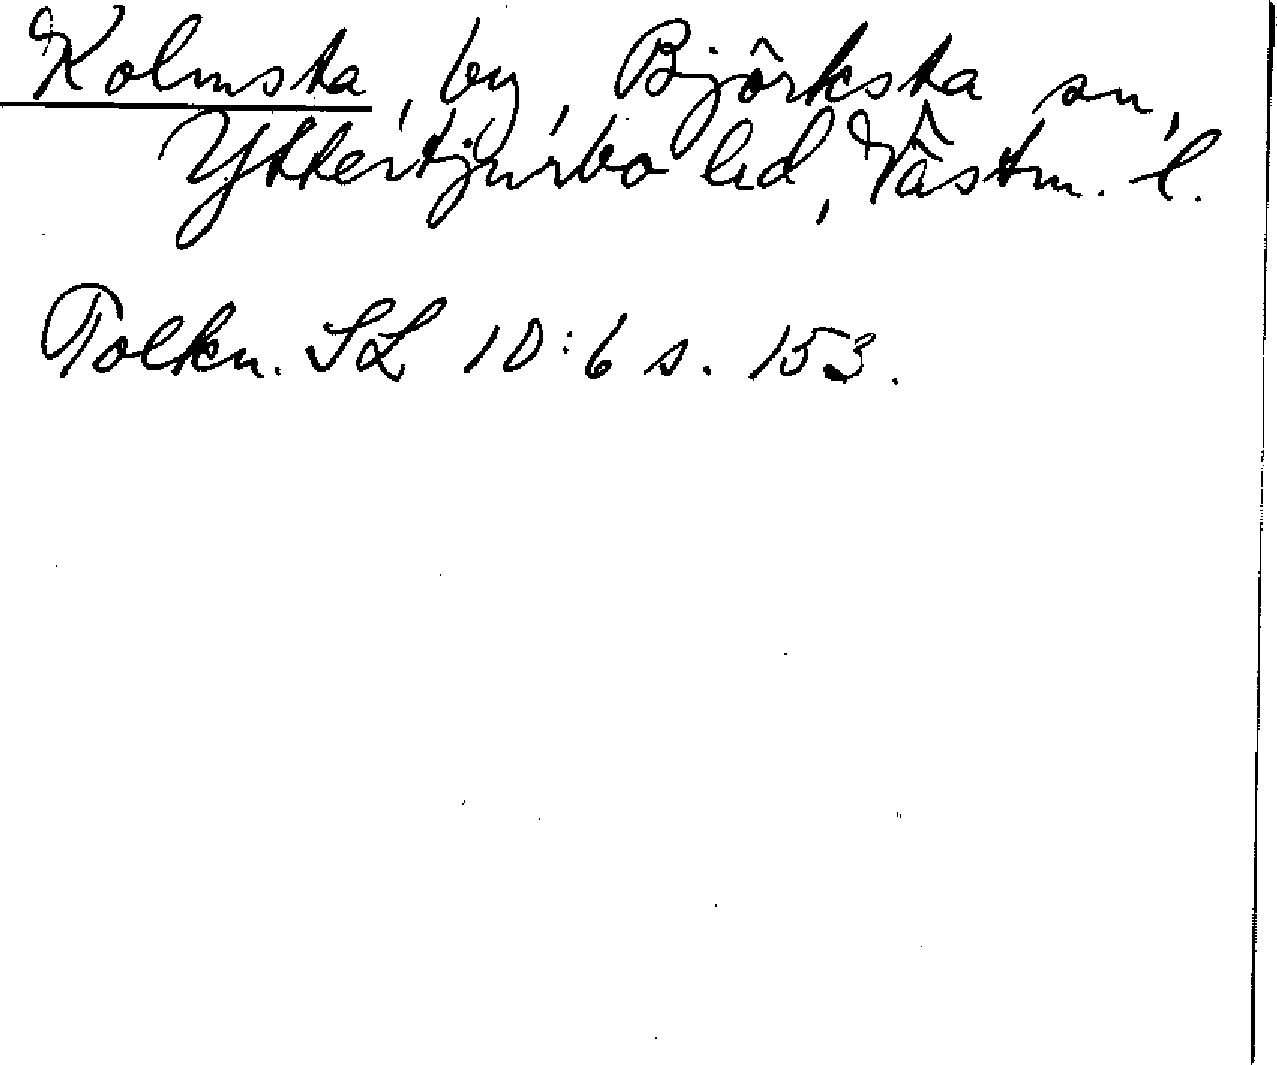 Kolmsta, by, Björksta sn,
Yttertjurbo hd, Västm. l.
Tolkn. SL 10:6 s. 153.